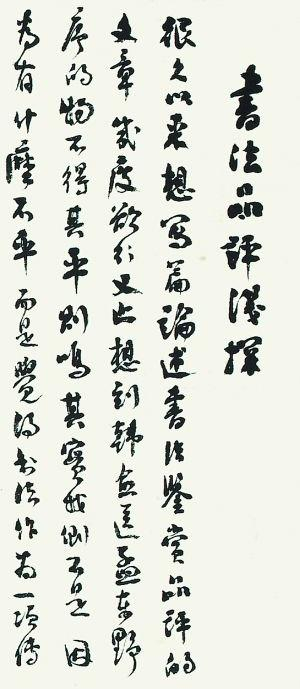 書法品評淺探
很久以來想寫篇論述書法鑒賞品評的
文章幾度欲行又止想到韓愈送孟東野
序的物不得其平則鳴其實我倒不是因
為有什麼不平而是覺得書法作為一項傳